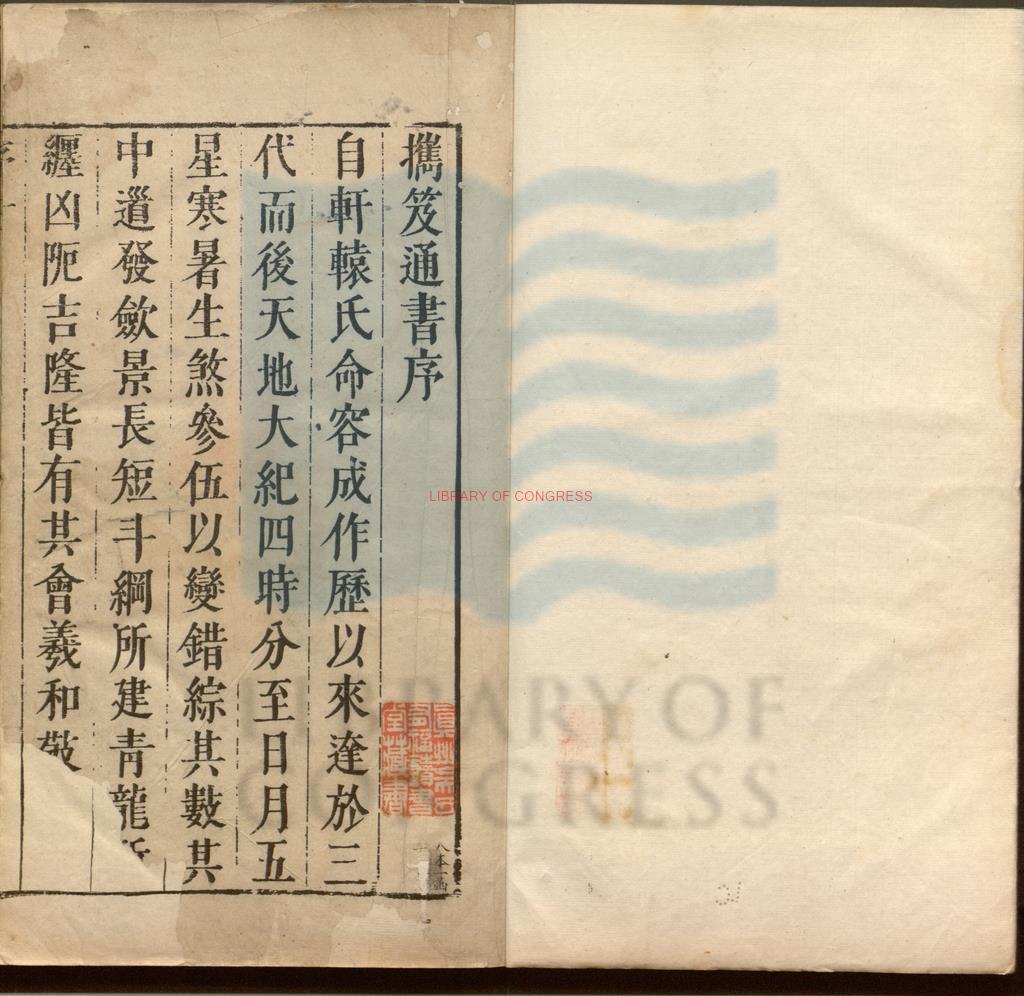 攜笈通書序
自軒轅氏命容成作歷以來逹於三
代而後天地大紀四時分至日月五
星寒暑生煞參伍以變錯綜其數其
中遒發歛景長短斗綱所建青龍所
纒凶阨吉隆皆有其會羲和敬
LIBRARY OF CONGRESS
LIBRARY OF
CONGRESS